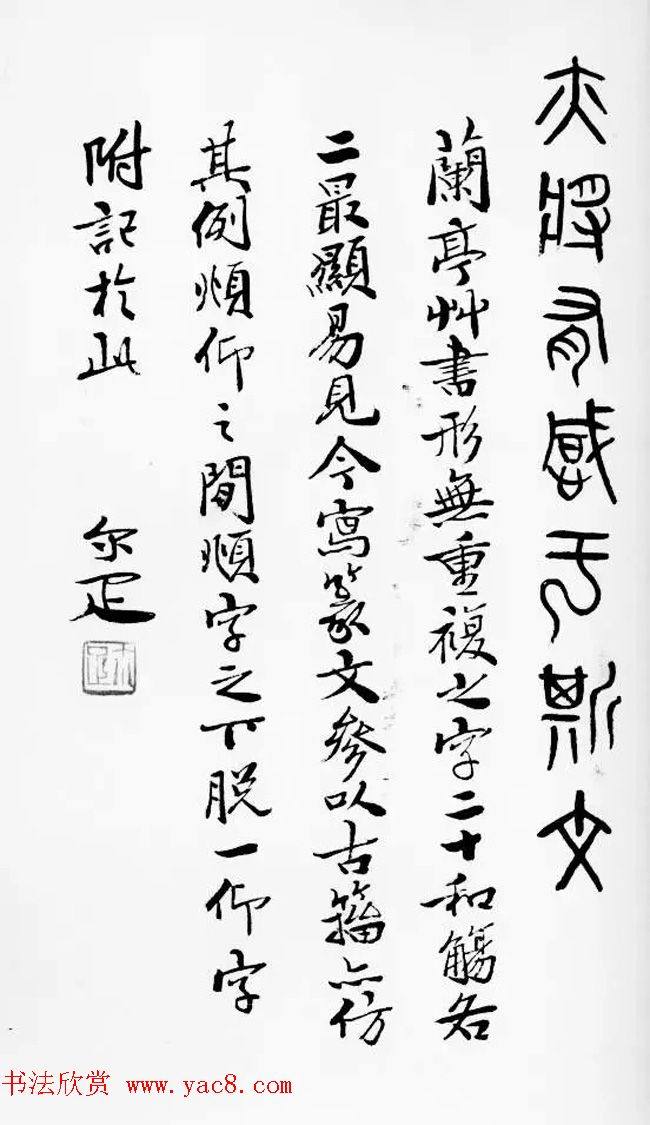 亦將有感于斯文
蘭亭艸書形無重複之字二十和觴各
二最顯易見今寫篆文參以古籀亦仿
其例頫仰之間頫字之下脱一仰字
附記於此
尔疋
书法欣赏 www.yac8.com